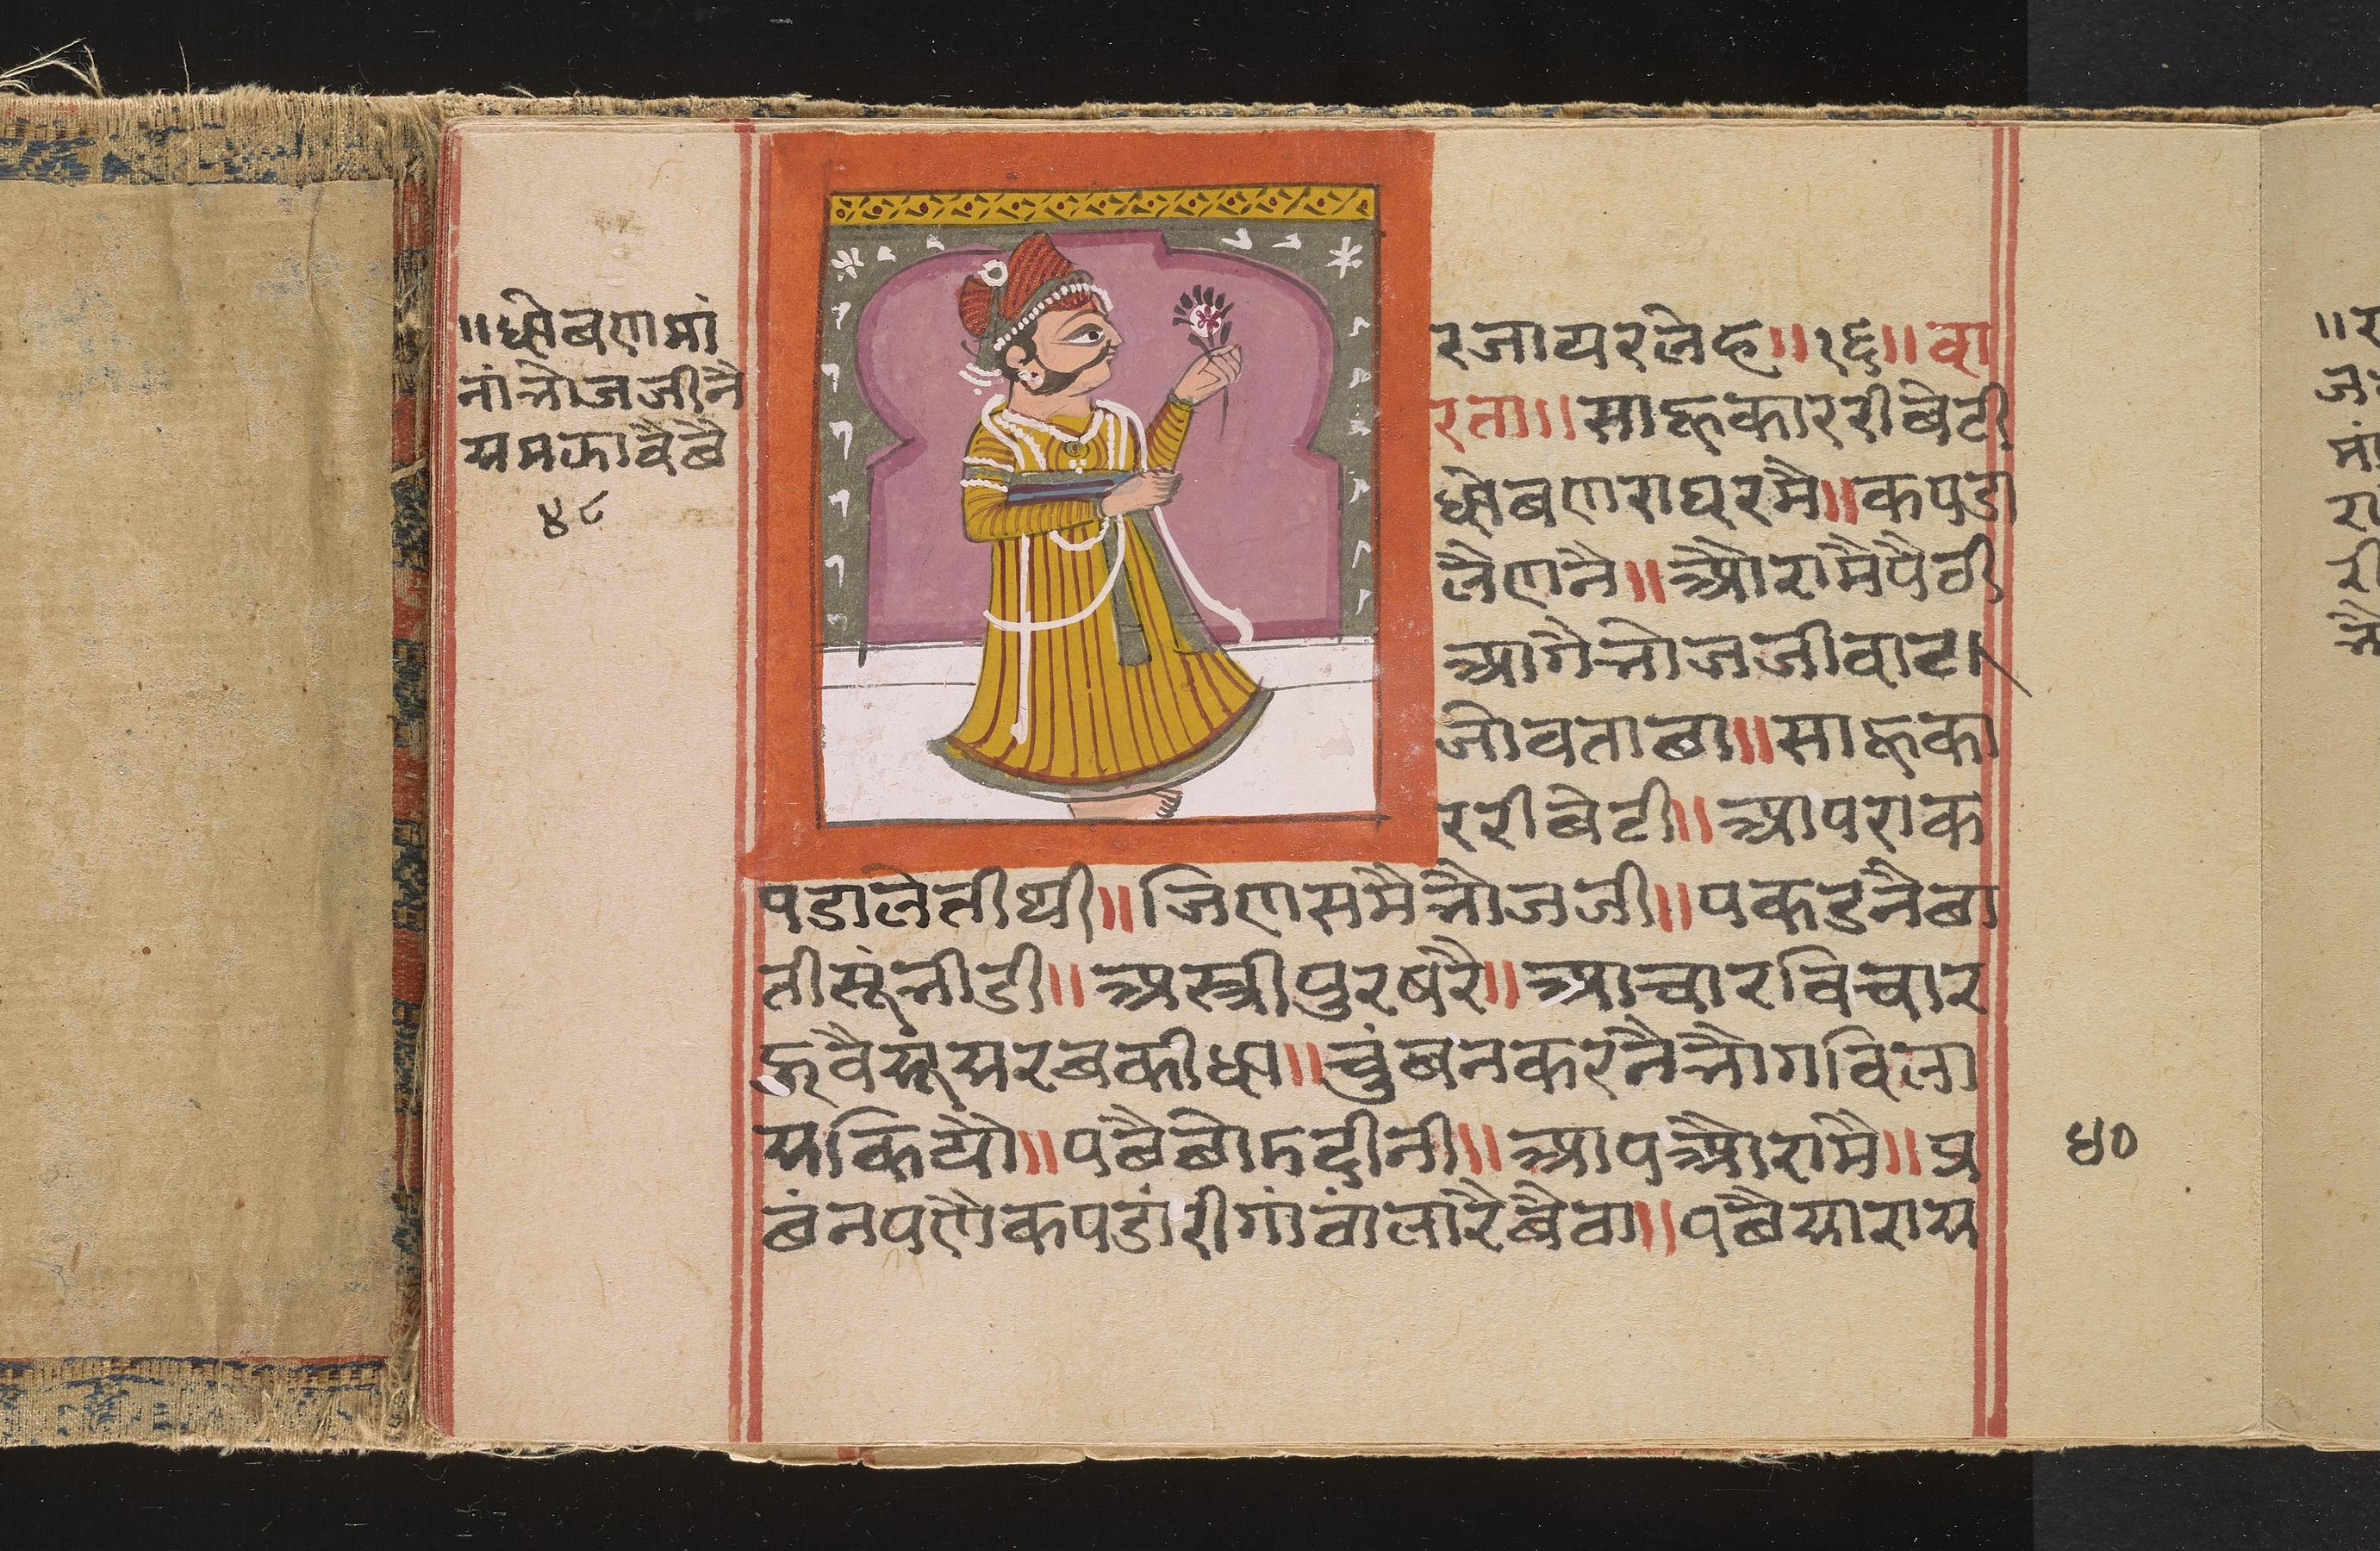 ॥धोबणमां
नांभोजजीनै
समझावैबै
४८
रजायरलेह॥१६॥वा
रता॥साहूकाररीबेटी
धोबणराघरमै॥कपडा
लैणनै॥ओरामैपैठी
आगैभोजजीवाट
जोवताबा॥साहूका
ररीबेटी॥आपराक
पडालेतीथी॥जिणसमैभोजजी॥पकडनैबा
तीसूंभीडी॥अस्त्रीपुरषरै॥आचारविचार
हूवैसूंसरबकीधा॥चुंबनकरनैभोगविला
सकियौ॥पबैबोडदीनी॥आपओरामै॥प्र
बंनपणैकपडांरीगांवांलारैबैठा॥पबैसारास
४०